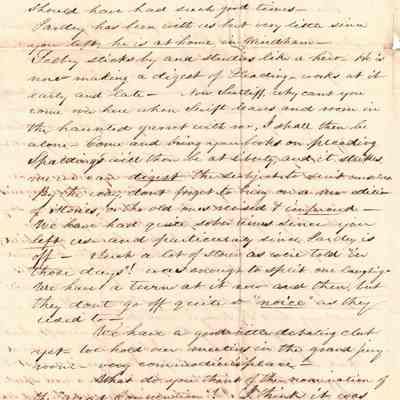 should have had such good times—
Pardey has been with us but very little since
you left, he is at home in Windham—
sticks by and studies like a hero— He is
now making a digest of Pleading— works at it
early and late— Now why cant you
come up here when Swift leaves and room in
the haunted garret with me, I shall then be
alone— Come and bring your books on pleading
Spaldings will then be at liberty and it strikes
me we can digest the subject to suit ourselves
By the way, dont forget to bring on a new edition
of stories, or the old ones revised & improved—
We have had quite sober times since you
left us and particularly since Pardey is
off— Such a lot of stories as were told in
those days! was enough to split one laughing—
We have a turn at it now and then, but
they dont go off quite so "noice" as they
used to—
We have a good little debating club
yet— we hold our meetings in the grand jury
room— very commodious place—
What do you think of the nomination of
the Convention? I think it was